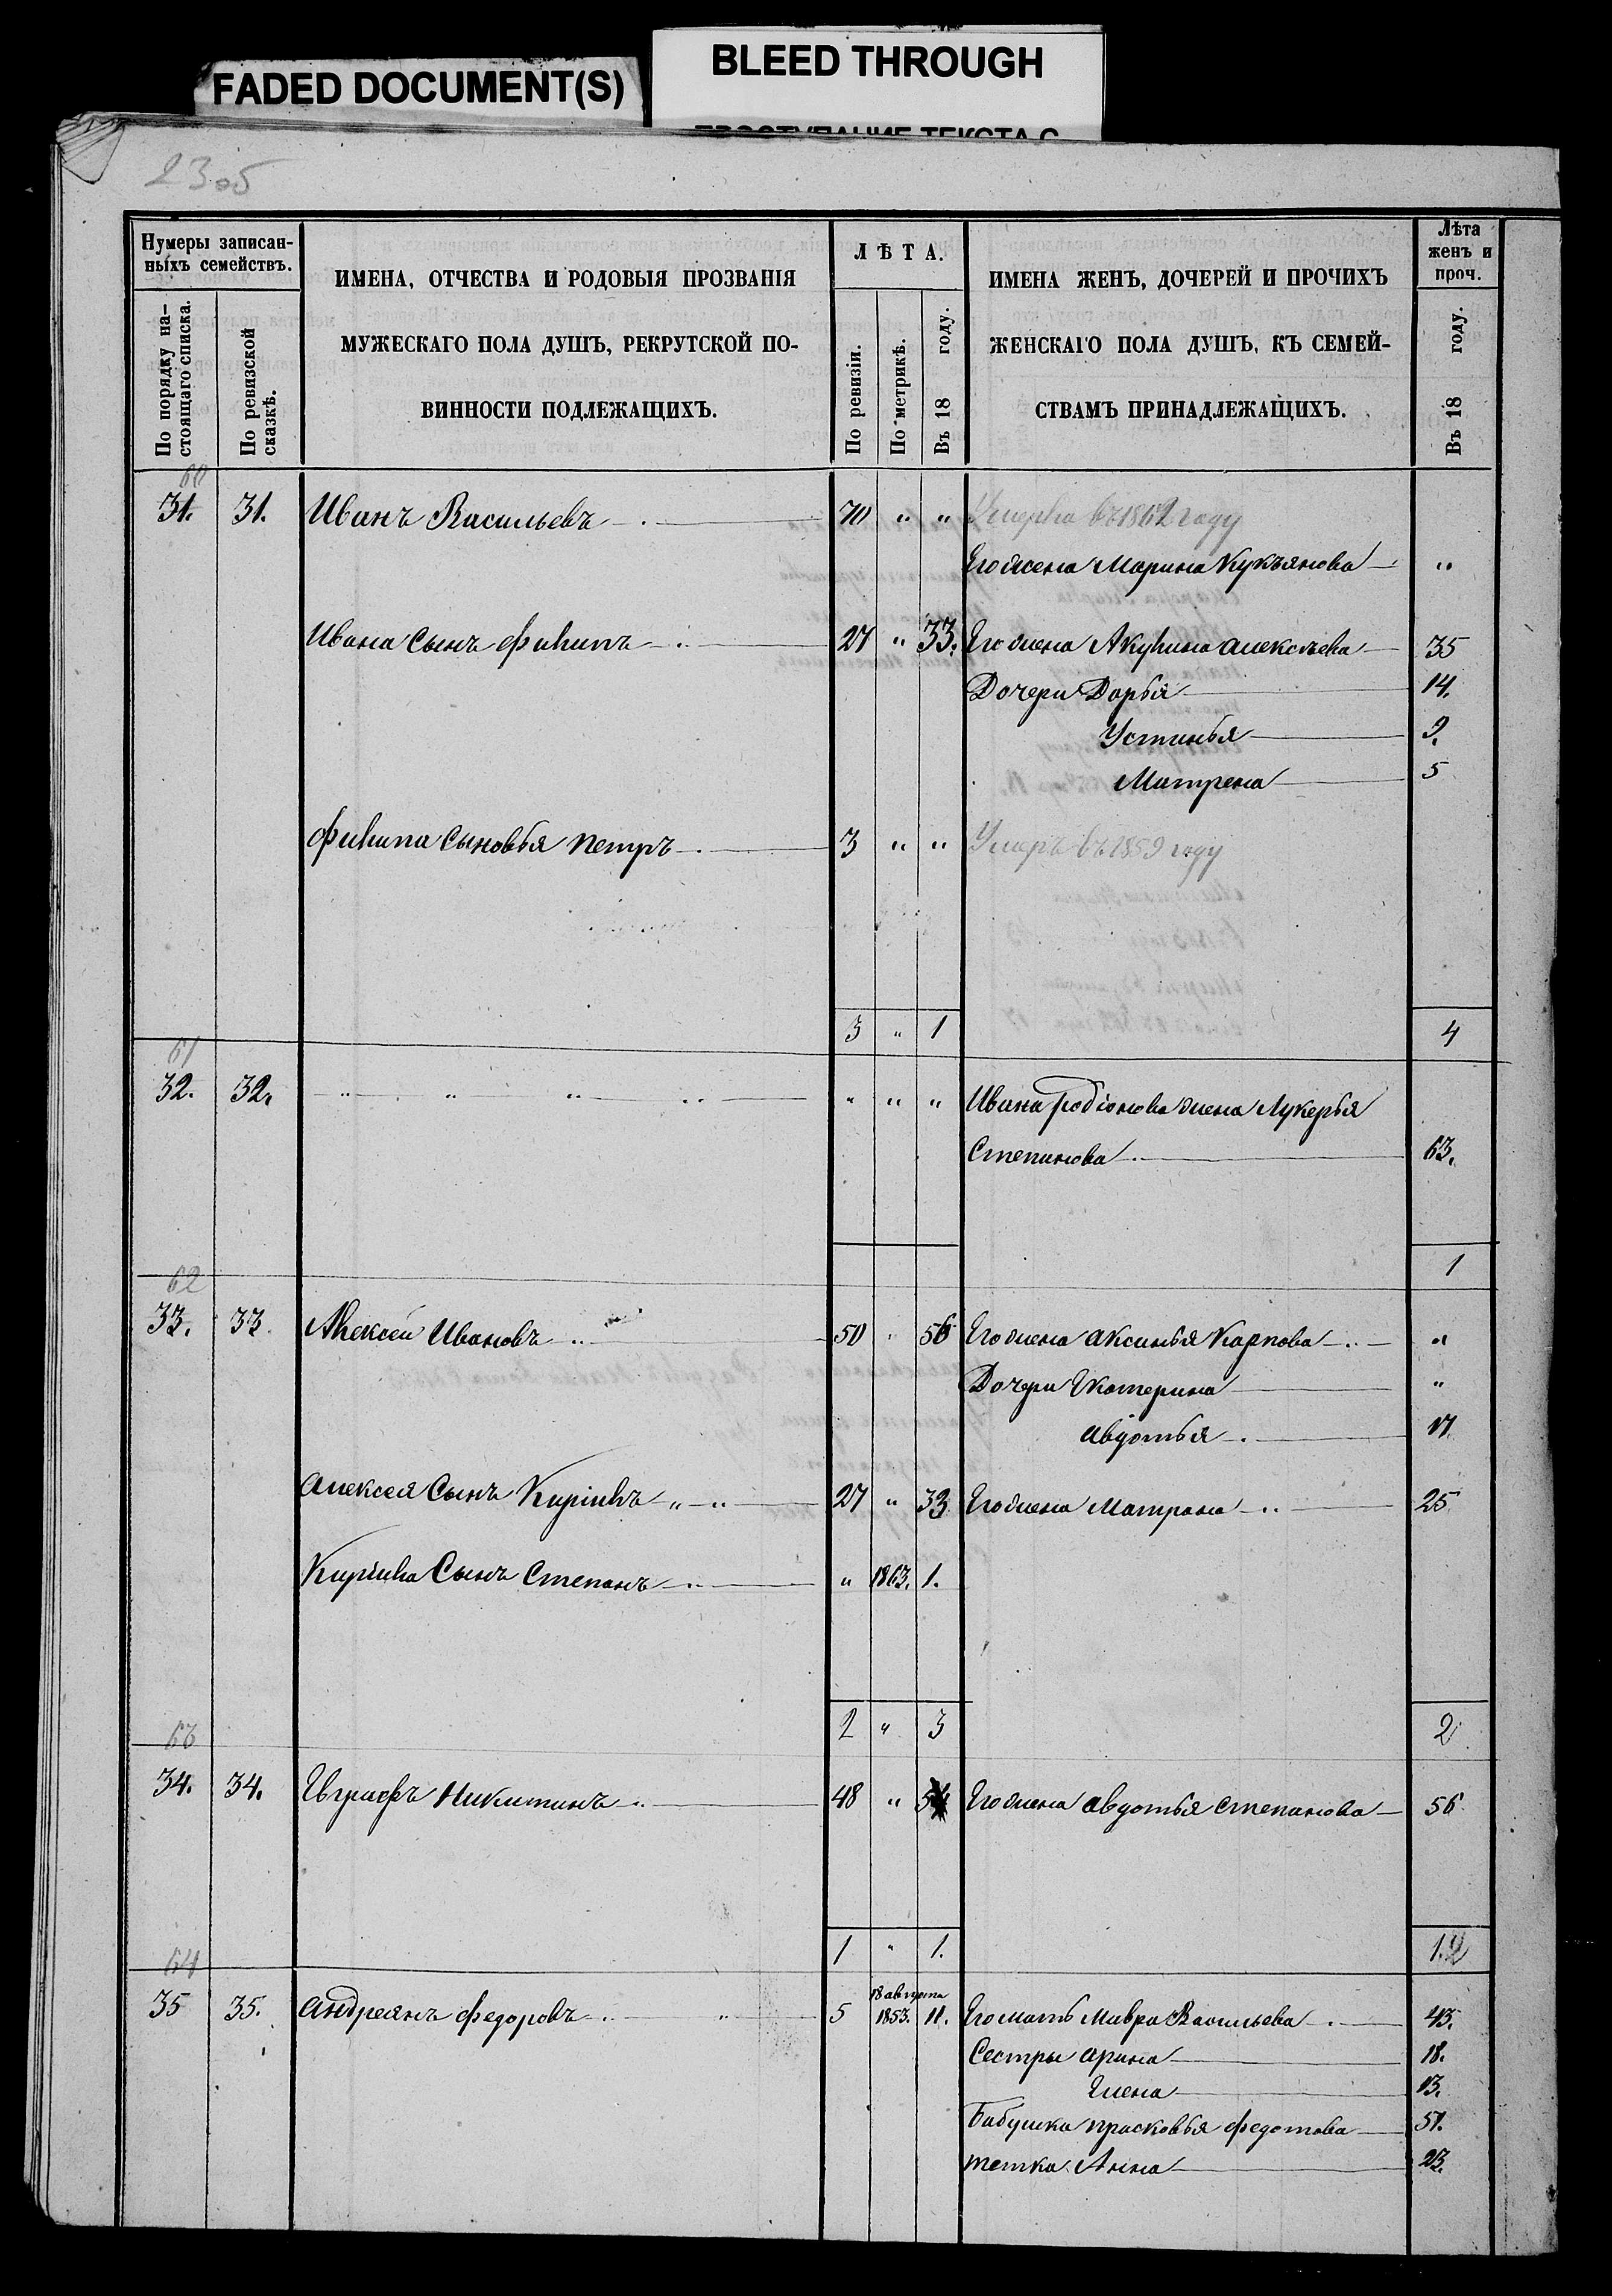 FADED DOCUMENT(S)
BLEED THROUGH
23 об
Нумеры записан-
ныхъ семействъ.
По порядку на-
стоящаго списка.
По ревизской
сказкѣ.
ИМЕНА, ОТЧЕСТВА И РОДОВЫЯ ПРОЗВАНІЯ
МУЖЕСКАГО ПОЛА ДУШЪ, РЕКРУТСКОЙ ПО-
ВИННОСТИ ПОДЛЕЖАЩИХЪ.
ЛѢТА.
По ревизіи.
По метрикѣ.
Въ 18 году.
ИМЕНА ЖЕНЪ, ДОЧЕРЕЙ И ПРОЧИХЪ
ЖЕНСКАГО ПОЛА ДУШЪ, КЪ СЕМЕЙ-
СТВАМЪ ПРИНАДЛЕЖАЩИХЪ.
Лѣта
женъ и
проч.
Въ 18 году.
60
31. 31. Иванъ Васильевъ 70 " " Умерла въ 1862 году
Его жена Марина Лукъянова "
Ивана Сынъ Филипъ 27 " 33. Его жена Акулина Алексѣева 35
Дочери Дарья 14.
Устинья 9.
Матрена 5
Филипа Сыновья Петръ 3 " " Умеръ въ 1859 году
3 " 1 4
61
32. 32. " " " " " " " Ивана Родіонова жена Лукерья
Степанова 63.
1
62
33. 33. Алексѣй Ивановъ 50 " 56 Его жена Аксинья Карпова "
Дочери Екатерина "
Авдотья 17.
Алексея Сынъ Кирілъ 27 " 33 Его жена Матрона 25
Кирила Сынъ Степанъ " 1863. 1.
2 " 3 2
63
34. 34. Евграфъ Никитинъ 48 " 54 Его жена Авдотья Степанова 56
1 " 1. 1.2
64
18 августа
35 35. Андреянъ Федоровъ 5 1853. 11. Его мать Мавра Васильева 43.
Сестры Арина 18.
Елена 13.
Бабушка Прасковья Федотова 51.
тетка Анна 23.